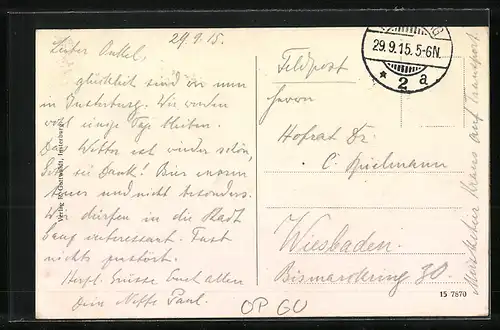 29.9.15.
Lieber Onkel,
glücklich sind wir nun
in Insterburg. Wir werden
wohl einige Tage bleiben.
Das Wetter ist wieder schön,
Gott sei Dank! Bier
teuer und nicht besonders.
Wir dürfen in die Stadt
interessant. Fast
nichts zerstört.
Herzl. Grüsse Euch allen
Dein Neffe Paul.
Verlag
Insterburg
29.9.15. 5-6N.
* 2 a
Feldpost
Herrn
Hofrat Dr.
C. Spielmann
Wiesbaden.
Bismarckring 30.
Musketier auf Transport.
15 7870
OP GU